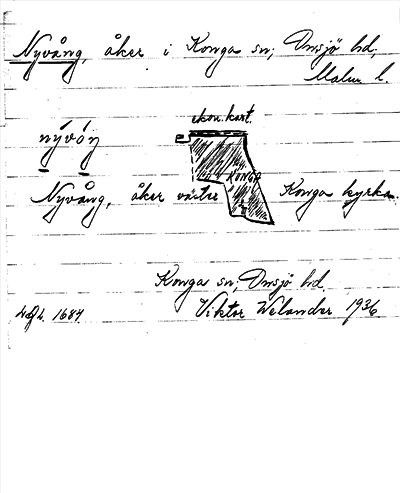 Nyvång, åker i Konga sn; Onsjö hd,
Malm l.
ekon. kart.
nývóŋ
KONGA
Nyvång, åker väster Konga kyrka.
Konga sn; Onsjö hd.
1684.
Viktor Welander 1936